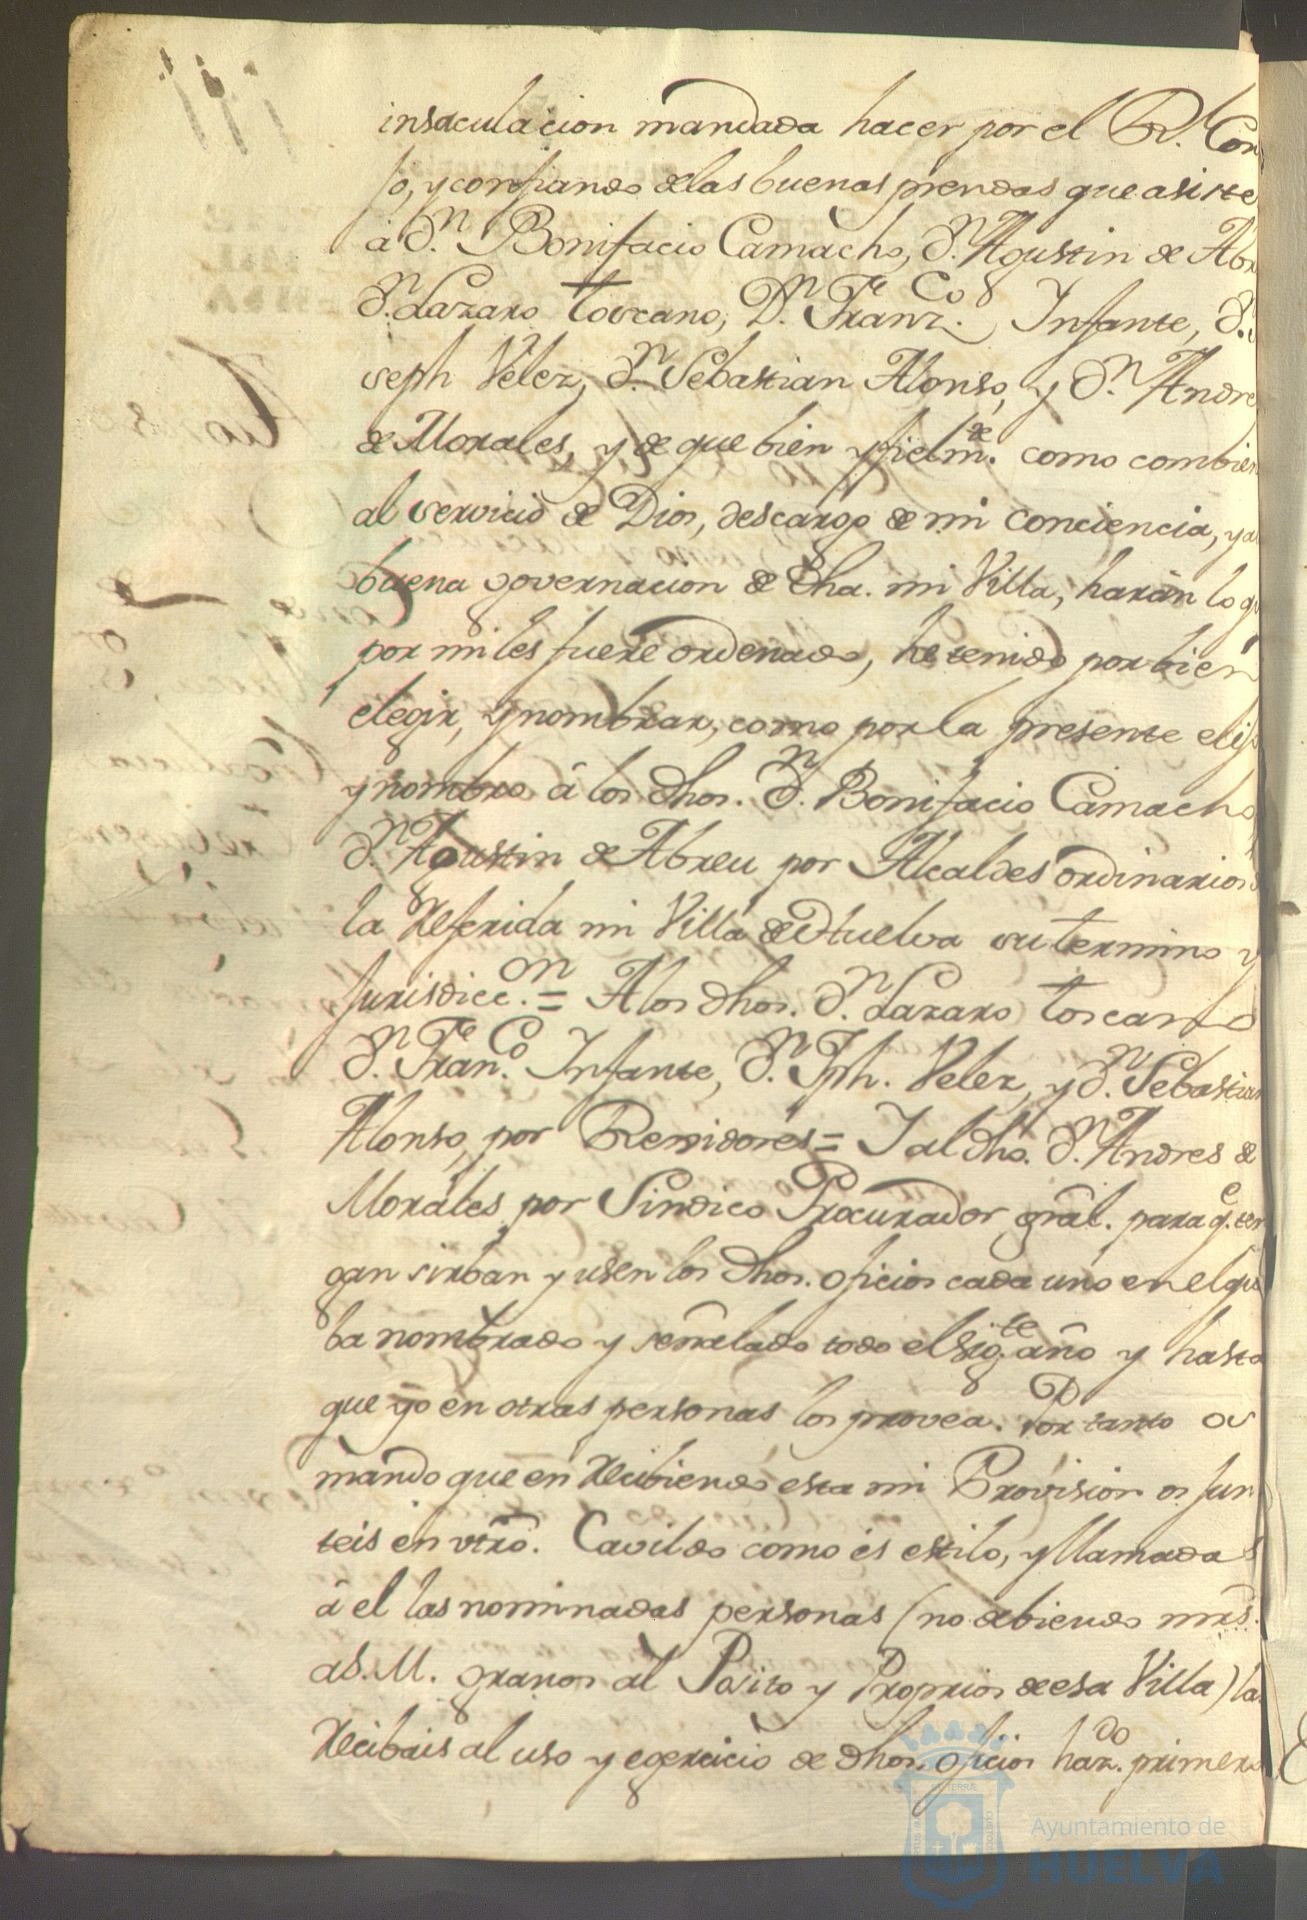 insaculacion mandada hacer por el R.l Con
jo, y confiando de las buenas prendas que asiste
à d.n Bonifacio Camacho, d.n Agustin de Abr
d.n Lazaro toscano, D.n Franz.co Infante, d.n
seph Velez, d.n Sebastian Alonso, y d.n Andre
de Morales, y de que bien y fielm.te como combien
al servicio de Dios, descargo de mi conciencia, y a
buena governacion de dha. mi Villa, haràn lo q
por mi les fuere ordenado, he tenido por bien
elegir, y nombrar, como por la presente elijo
y nombro à los dhos. d.n Bonifacio Camacho
d.n Agustin de Abreu por Alcaldes ordinarios
la Referida mi Villa de Huelva su termino y
Jurisdicc.on = A los dhos. d.n Lazaro toscano
d.n Fran.co Infante, d.n Jph. Velez, y d.n Sebastian
Alonso, por Regidores = Y al dho. d.n Andres de
Morales por Sindico Procurador grãl. para q.e ten
gan sirban y usen los dhos. oficios cada uno en el que
ba nombrado y señalado todo el sig.te año y hasta
que yo en otras personas los provea. Por tanto os
mando que en Recibiendo esta mi Provision os jun
teis en vtrõ. Cavildo como és estilo, y llamadas
à el las nominadas personas (no debiendo mrs.
a S. M. granos al Posito y Proprios de esa Villa) la
Recibais al uso y egercicio de dhos. oficios haz.do primero
Ayuntamiento de
HUELVA